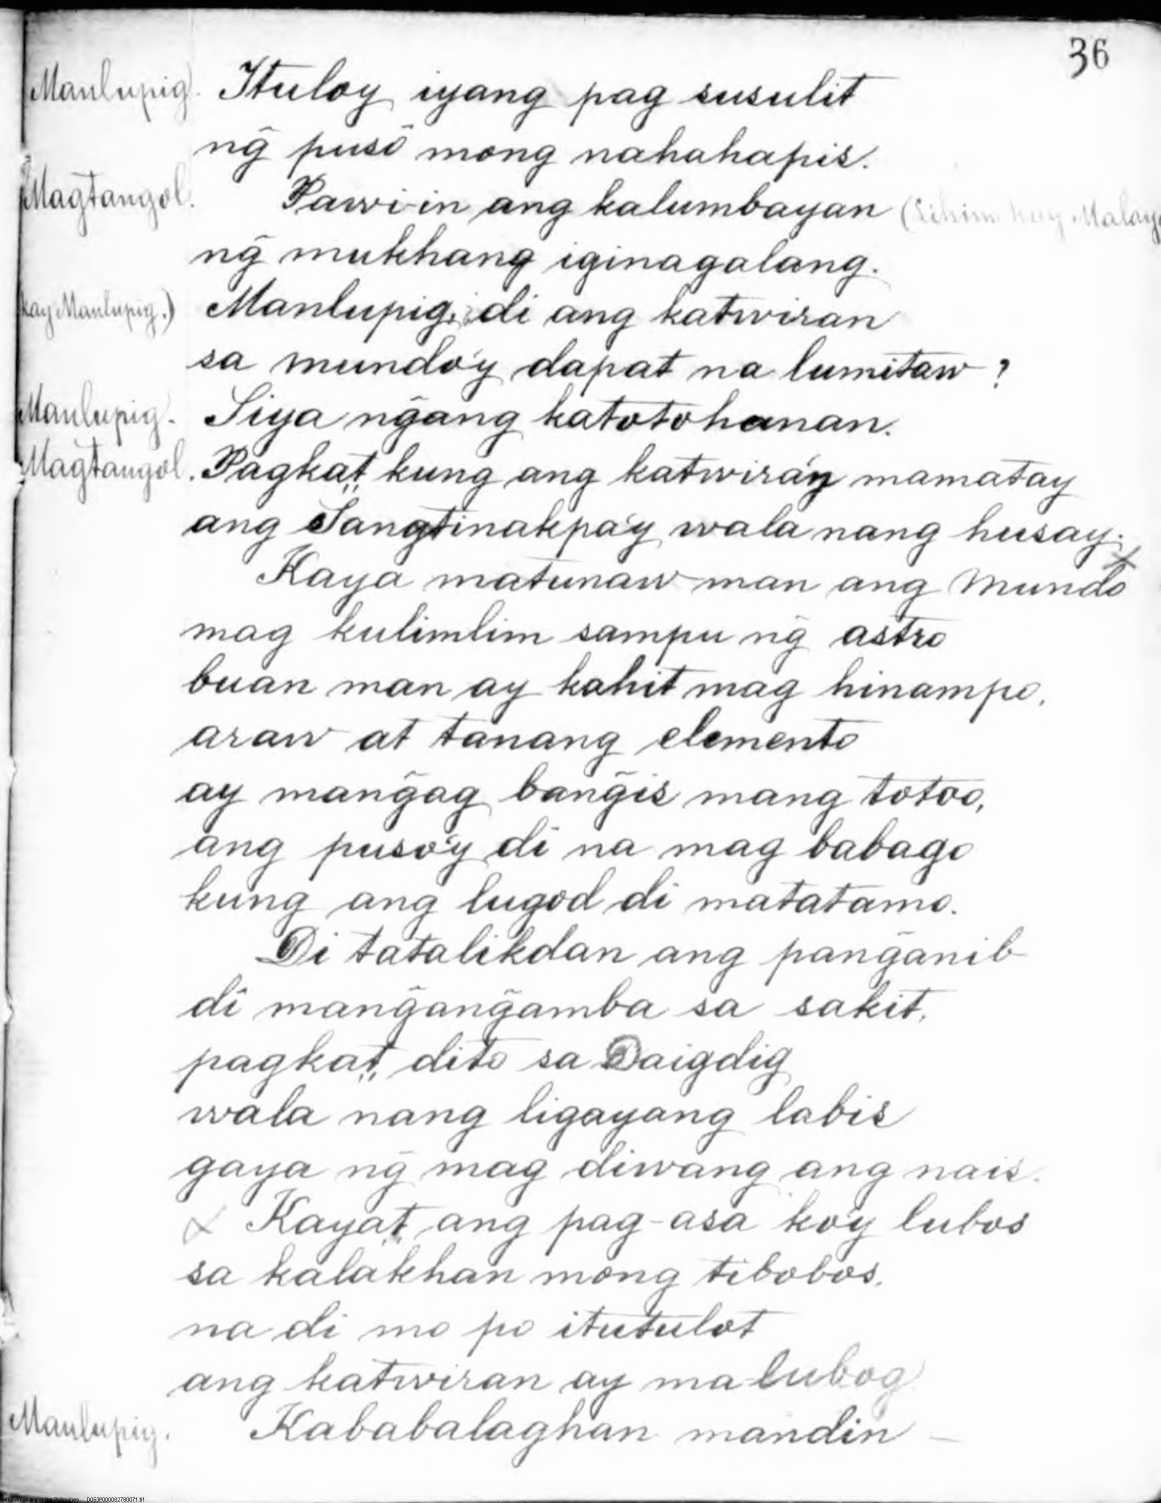 36
Manlupig. Ituloy iyang pag susulit
ng̃ pusô mong nahahapis.
Magtangol. Pawi-in ang kalumbayan (Lihim kay Malaya
ng̃ mukhang iginagalang.
(kay Manlupig.) Manlupig, di ang katwiran
sa mundo'y dapat na lumitaw?
Manlupig. Siya ng̃ang katotohanan.
Magtangol. Pagka't kung ang katwira'y mamatay
ang Sangtinakpa'y wala nang husay.
Kaya matunaw man ang Mundo
mag kulimlim sampu ng̃ astro
buan man ay kahit mag hinampo,
araw at tanang elemento
ay mang̃ag bang̃is mang totoo,
ang puso'y di na mag babago
kung ang lugod di matatamo.
Di tatalikdan ang pang̃anib
di mang̃ang̃amba sa sakit,
pagka't dito sa Daigdig
wala nang ligayang labis
gaya ng̃ mag diwang ang nais.
x Kaya't ang pag-asa ko'y lubos
sa kalakhan mong tibobos,
na di mo po itutulot
ang katwiran ay ma-lubog
Manlupig. Kababalaghan mandin —